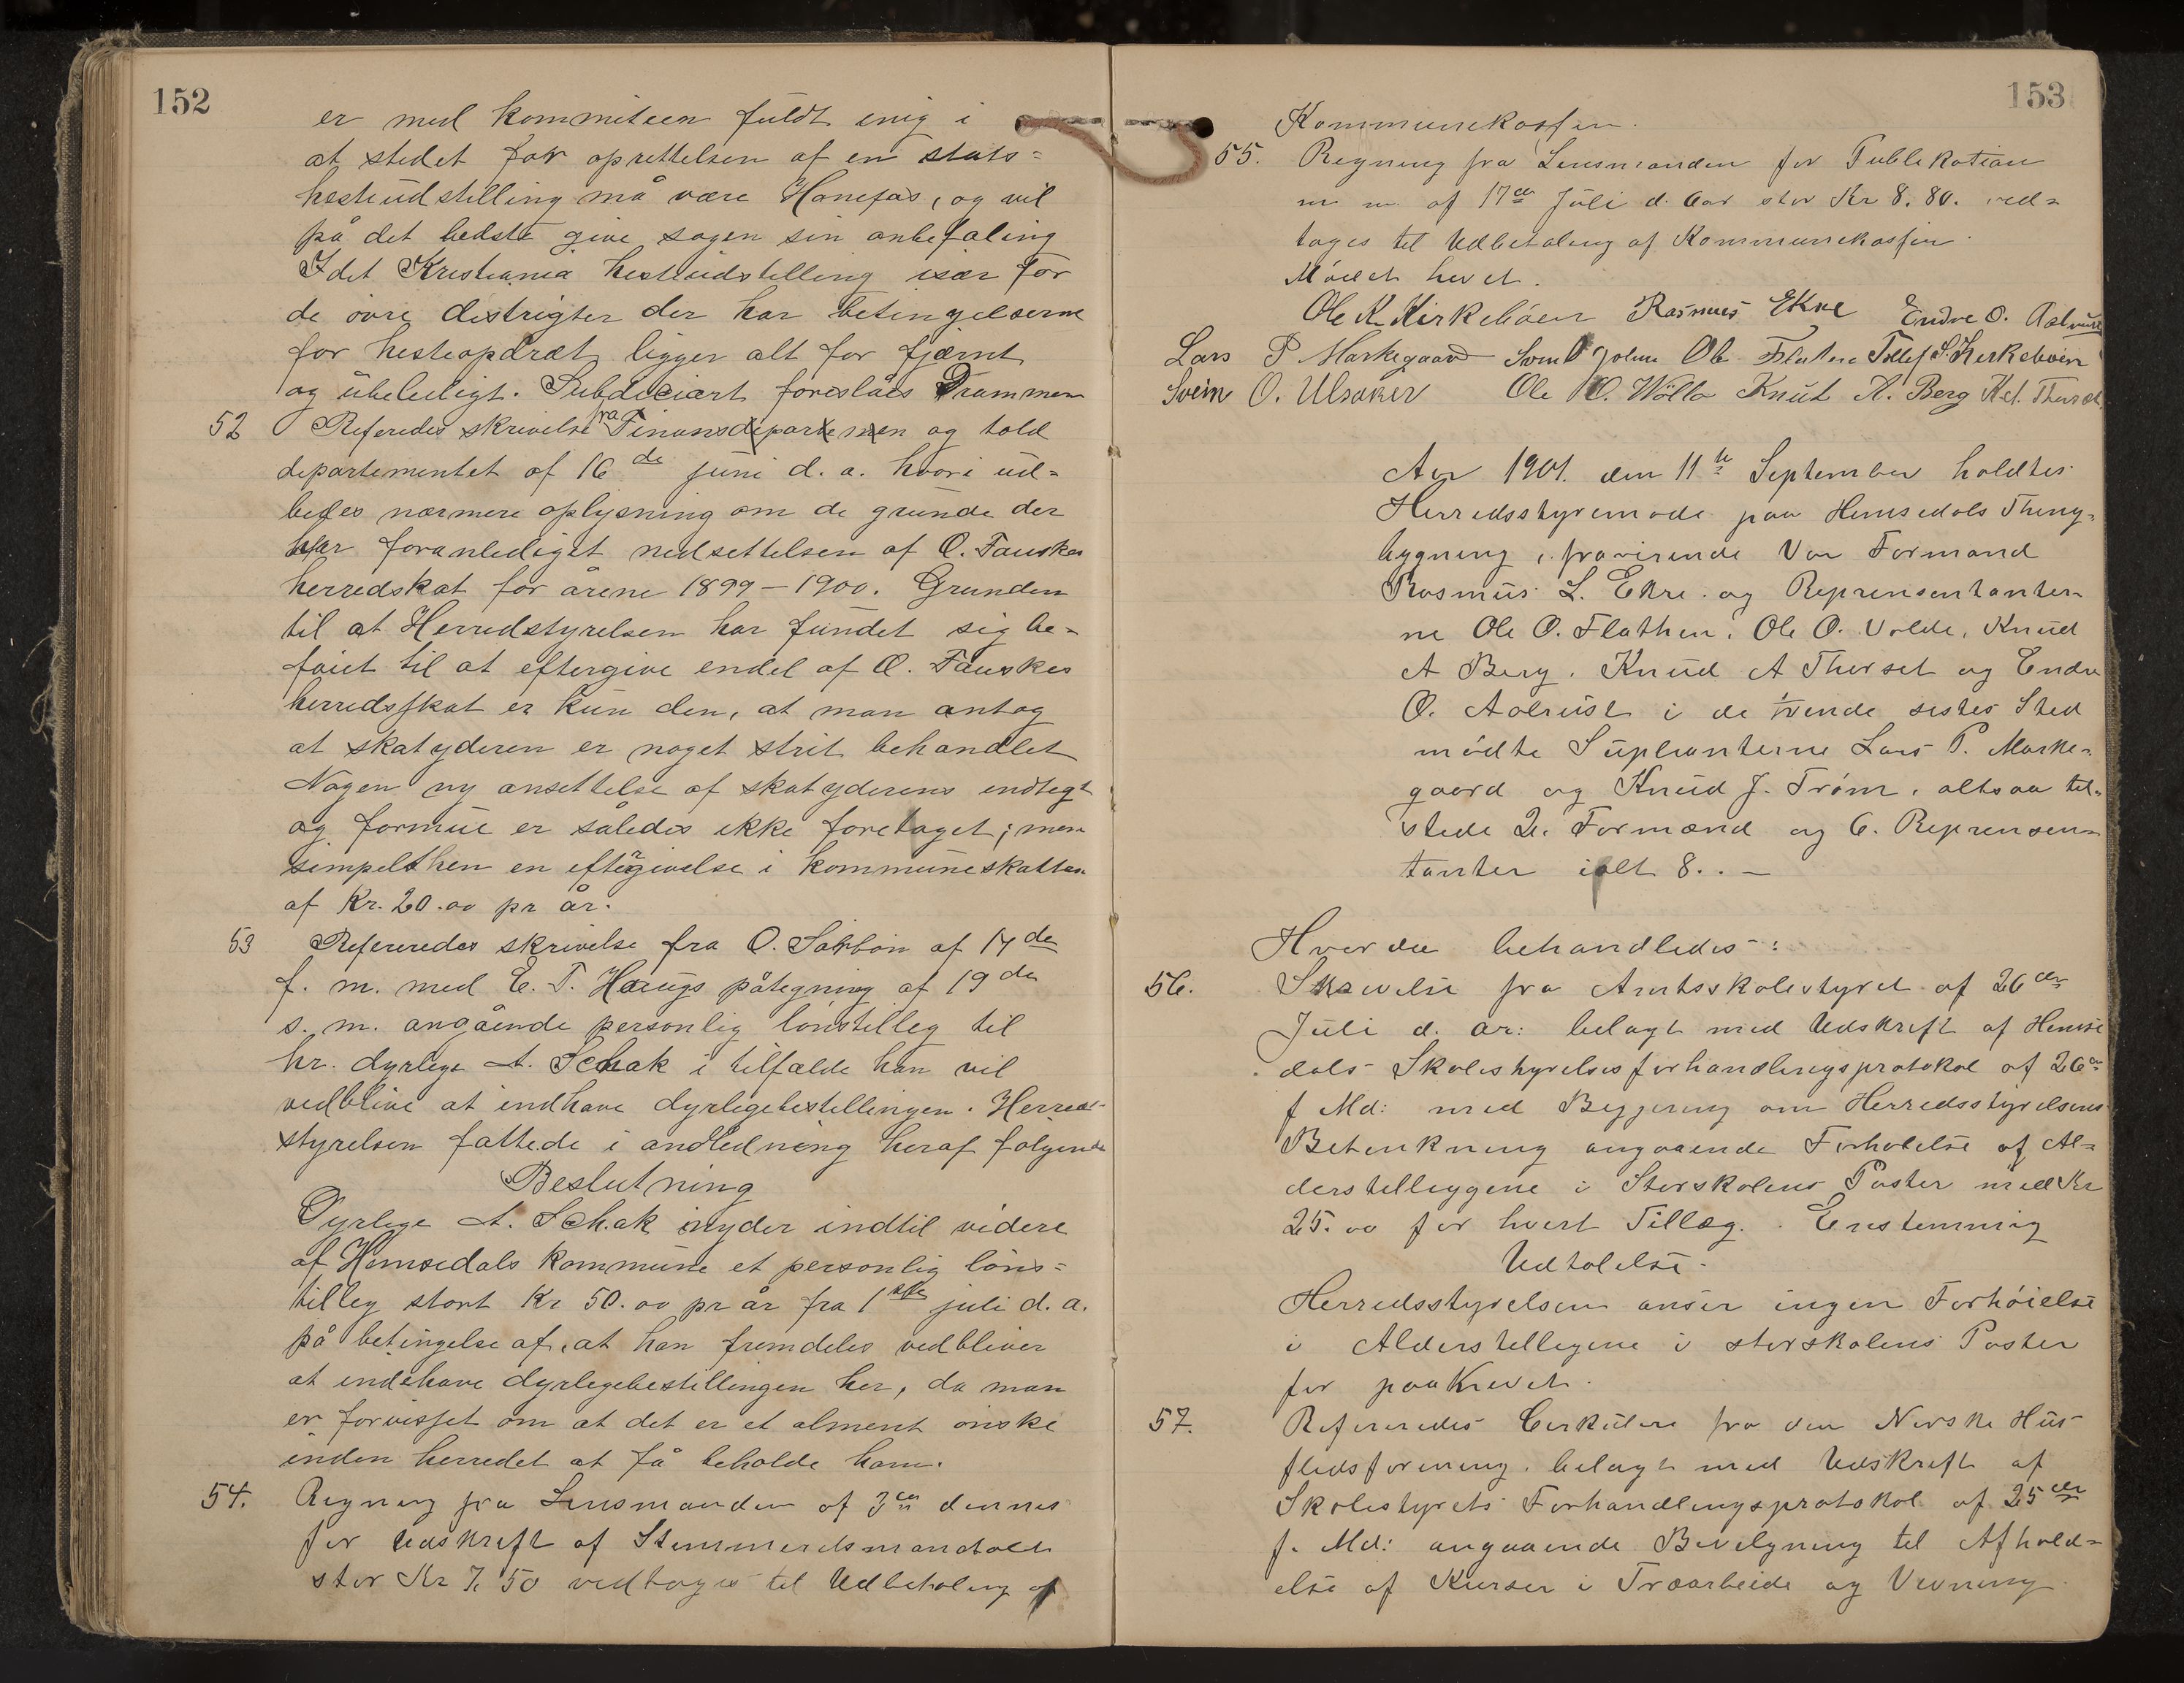 152
er med kommiteen fuldt enig i
at stedet for oprettelsen af en stats=
hesteudstilling må være Hønefos, og vil
på det bedste give sagen sin anbefaling
Idet Kristiania hesteudstilling især for
de øvre distrigter der har betingelserne
for hesteopdræt ligger alt for fjærnt
og ubeleiligt. Subdiciært foreslåes Drammen
52 Referedes skrivelse fra Finansdepartemen og told
departementet af 16de juni d. a. hvori ud=
bedes nærmere oplysning om de grunde der
har foranlediget nedsettelsen af O. Fauskes
herredskat for årene 1899-1900. Grunden
til at Herredstyrelsen har fundet sig be=
føiet til at eftergive endel af O. Fauskes
herredsskat er kun den, at man antog
at skatyderen er noget strit behandlet
Nogen ny ansettelse af skatyderens indtegt
og formue er således ikke foretaget; men
simpelthen en eftergivelse i kommuneskatten
af Kr. 20.00 pr år.
53 Refereredes skrivelse fra O. af 17de
f. m. med E. T. Haugs påtegning af 19de
s. m. angående personlig lønstilleg til
hr. dyrlege A. Schak i tilfælde han vil
vedblive at indhave dyrlegebestillingen. Herreds-
styrelsen fattede i andledning heraf følgende
Beslutning
Dyrlege A. Schak nyder indtil videre
af Hemsedals kommune et personlig løns=
tilleg stort Kr 50.00 pr år fra 1ste juli d. a.
på betingelse af, at han fremdeles vedbliver
at indehave dyrlegebestillingen her, da man
er forvisset om at det er et alment ønske
inden herredet at få beholde ham.
54. Regning fra Lensmanden af 3de dennes
for Udskrift af
stor Kr 7.50 vedtages til Udbetaling af
153
Kommunekassen.
55. Regning fra Lensmanden for Publikation
m. m. af 17de Juli d. Aar stor Kr 8.80. ved=
tages til Udbetaling af Kommunekassen.
Mødet hevet.
Ole K. Kirkebøen Rasmus Ekre Endre O. Aalrust
Lars P Markegaard Svend Ole Flaten Tollef S. Kirkebøen
Svein O. Ulsaker Ole O. Wølla Knut A. Berg Kd.
Aar 1901. den 11te September holdtes
Herredsstyremøde paa Hemsedals Thing=
bygning, fraværende Var Formand
Rasmus L. Ekre. og Reprensentanter=
ne Ole O. Flathen, Ole O. Volde, Knud
A Berg, Knud A Thorset og Endre
O. Aalrust i de tvende sistes Sted
mødte Suplianterne Lars P. Marke=
gaard og Knud J. Trøim, altsaa til=
stede 2. Formænd og 6. Reprensen=
tanter ialt 8. . -
Hvor da behandledes:
56. Skrivelse fra Amtsskolestyret af 26de
Juli d. Ar: belagt med Udskrift af Hemse
dals Skolestyrelses forhandlingsprotokol af 26de
f Md: med Begjæring om Herredsstyrelsens
Betenkning angaaende Forhøielse af Al=
derstilleggene i Storskolens Poster med Kr
25.00 for hvert Tillæg. . Enstemmig
Udtalelse.
Herredsstyrelsen anser ingen Forhøielse
i Alderstillegene i storskolens Poster
for paakrevet.
57. Refereredes Cirkulere fra den Norske Hus
flidsforening, belagt med Udskrift af
Skolestyrets Forhandlingsprotokol af 25de
f. Md: angaaende Bevilgning til Afhold=
else af Kurser i Træarbeide og Vevning